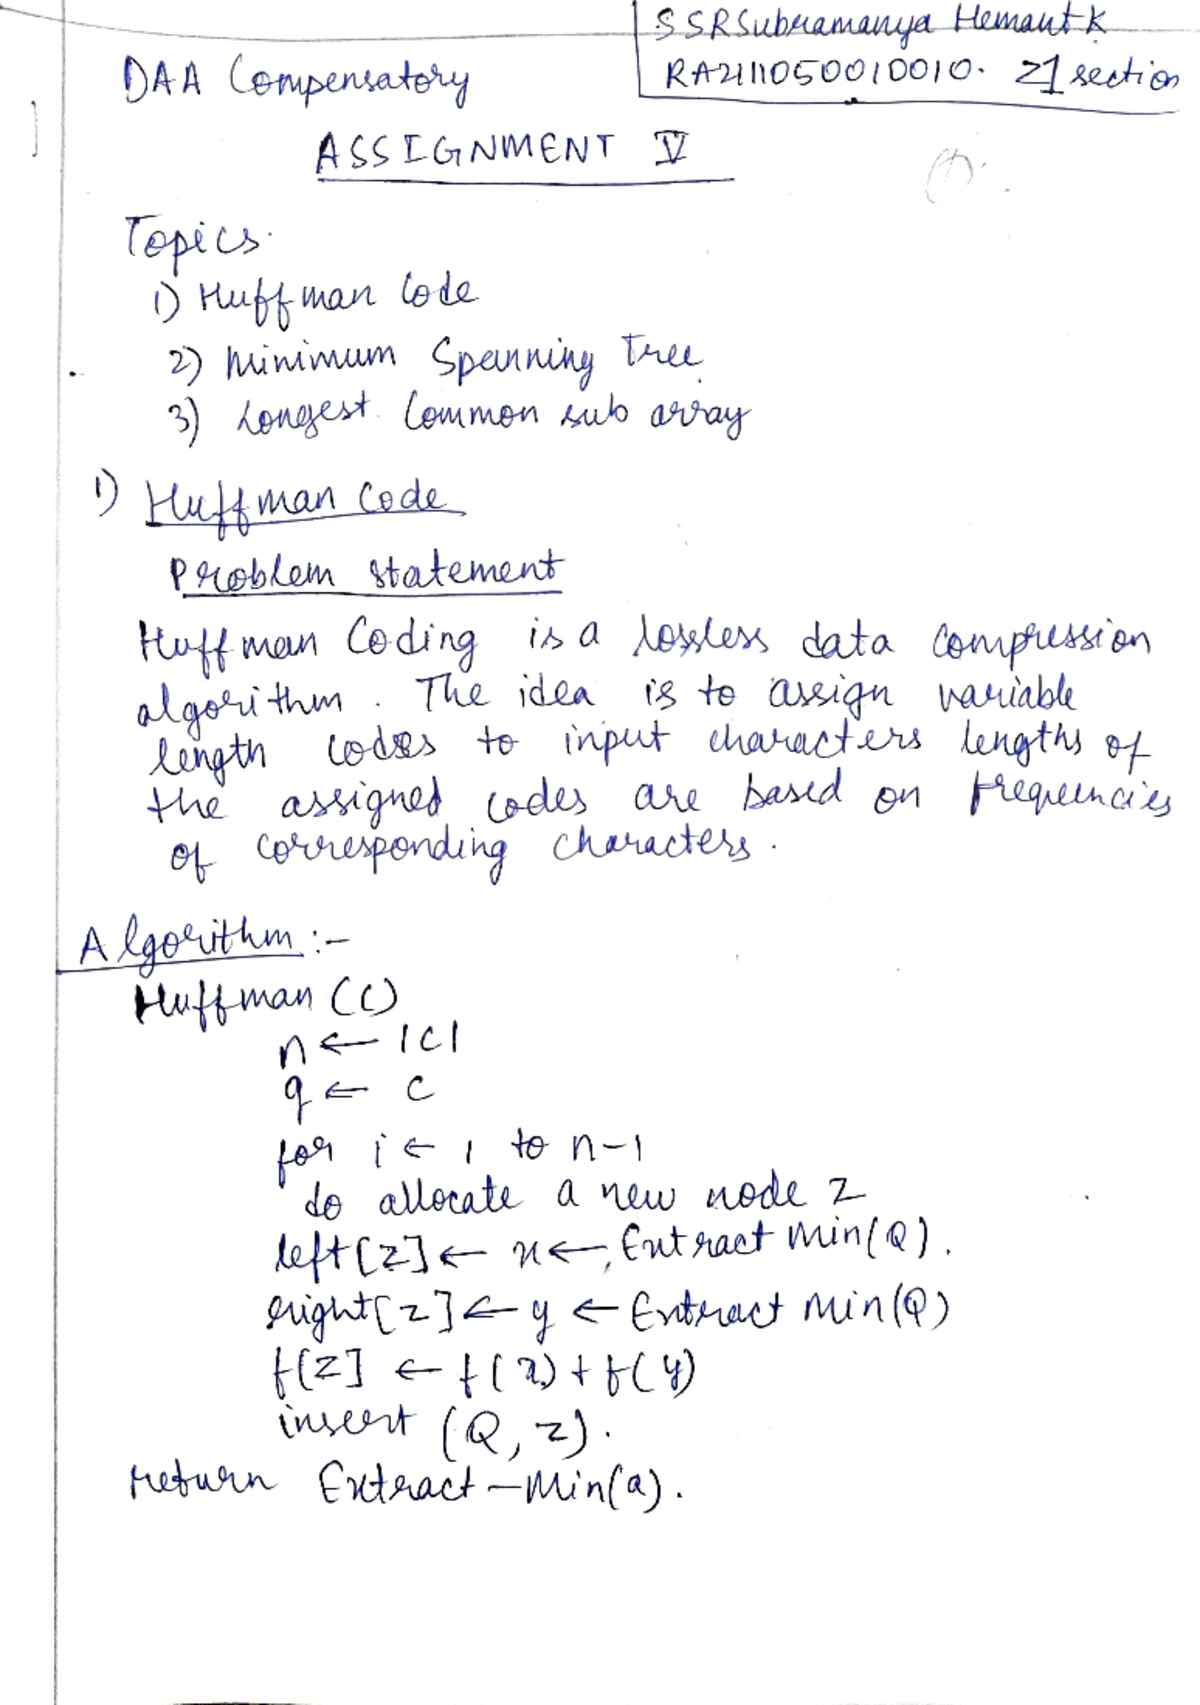 SSRSubramanya Hemant K
RA2111050010010. Z1 section
DAA Compensatory
ASSIGNMENT V
Topics.
1) Huffman Code
2) Minimum Spanning Tree
3) Longest Common sub array
1) Huffman Code
Problem statement
Huffman Coding is a lossless data compression
algorithm. The idea is to assign variable
length codes to input characters lengths of
the assigned codes are based on frequencies
of corresponding characters.
Algorithm :-
Huffman (C)
n ← |C|
q ← C
for i ← 1 to n-1
do allocate a new node z
left[z] ← x ← Extract Min(Q).
right[z] ← y ← Extract Min(Q)
f[z] ← f(x) + f(y)
insert (Q, z).
return Extract-Min(Q).